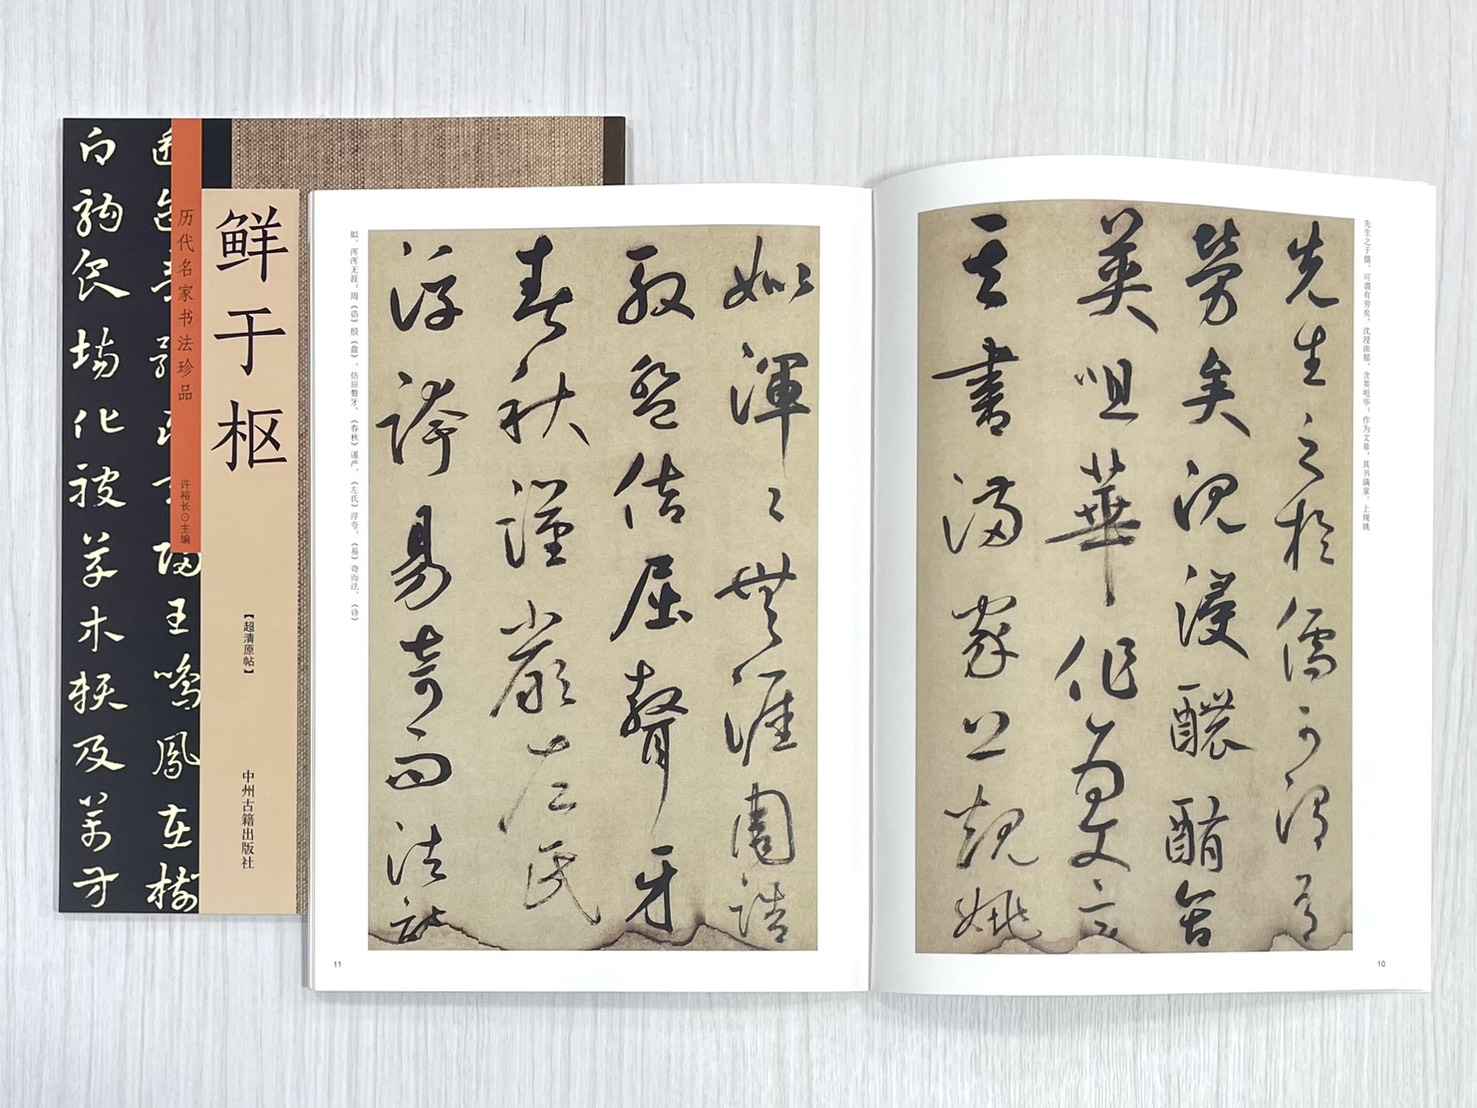 鲜于枢
历代名家书法珍品
许裕长⊙主编
【超清原帖】
中州古籍出版社
王鳴鳳在樹
白駒食場化被草木赖及萬方
先生之于儒，可谓有劳矣。沈浸浓郁，含英咀华；作为文章，其书满家。上规姚
先生之於儒可謂有
勞矣沉浸醲酭含
英咀華作為文章
其書滿家上規姚
10
姒渾〻無涯周誥
殷盤佶屈聱牙
春秋謹嚴左氏
浮誇易奇而法詩
姒，浑浑无涯，周《诰》殷《盘》，佶屈聱牙，《春秋》谨严，《左氏》浮夸，《易》奇而法，《诗》
11